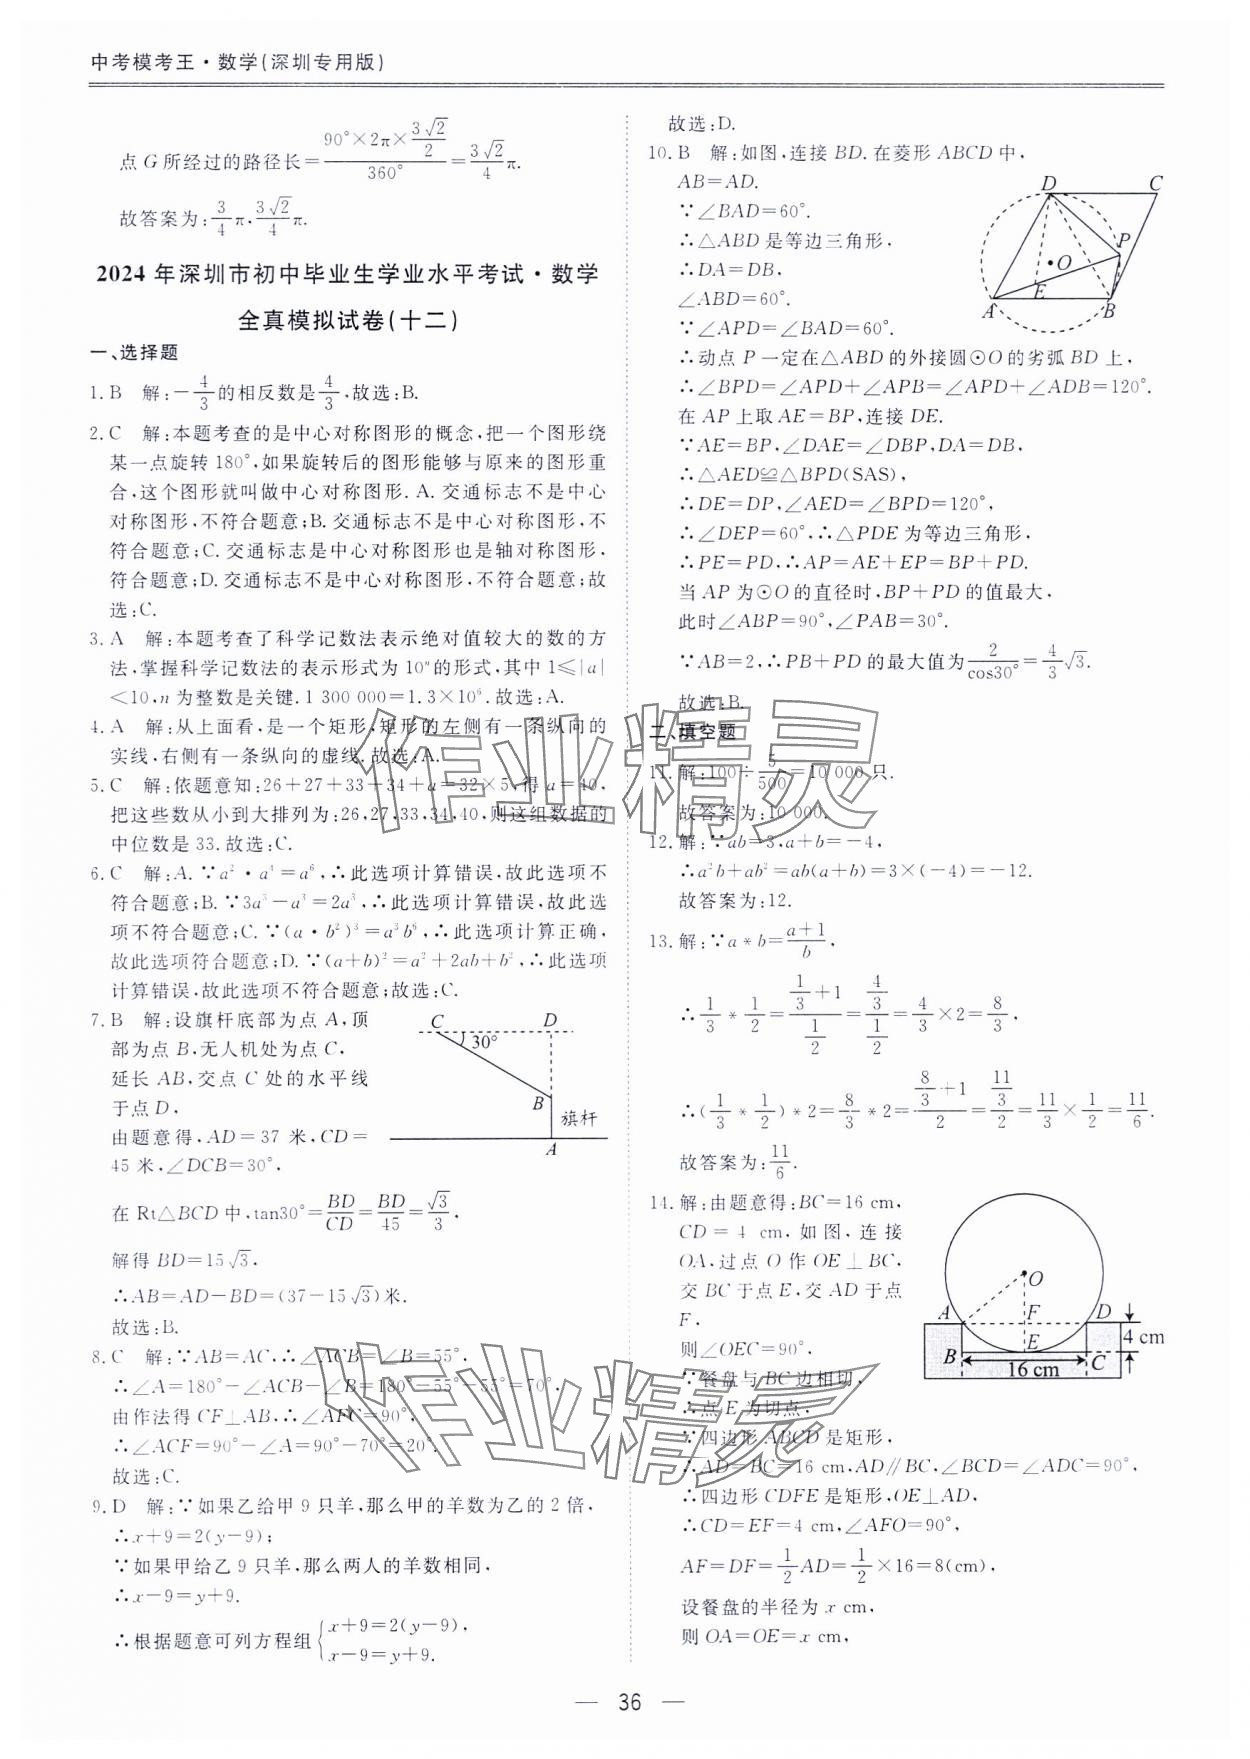 中考模考王·数学(深圳专用版)
点G所经过的路径长=(90°×2π×3√2/2)/360°=3√2/4π.
故答案为:3/4π,3√2/4π.
2024年深圳市初中毕业生学业水平考试·数学
全真模拟试卷(十二)
一、选择题
1. B 解:-4/3的相反数是4/3,故选:B.
2. C 解:本题考查的是中心对称图形的概念,把一个图形绕
某一点旋转180°,如果旋转后的图形能够与原来的图形重
合,这个图形就叫做中心对称图形. A. 交通标志不是中心
对称图形,不符合题意;B. 交通标志不是中心对称图形,不
符合题意;C. 交通标志是中心对称图形也是轴对称图形,
符合题意;D. 交通标志不是中心对称图形,不符合题意;故
选:C.
3. A 解:本题考查了科学记数法表示绝对值较大的数的方
法,掌握科学记数法的表示形式为10ⁿ的形式,其中1≤|a|
<10,n为整数是关键. 1 300 000=1.3×10⁶. 故选:A.
4. A 解:从上面看,是一个矩形,矩形的左侧有一条纵向的
实线,右侧有一条纵向的虚线. 故选:A.
5. C 解:依题意知:26+27+33+34+a=32×5,得a=40,
把这些数从小到大排列为:26,27,33,34,40,则这组数据的
中位数是33. 故选:C.
6. C 解:A. ∵a²·a⁴=a⁶,∴此选项计算错误,故此选项不
符合题意;B. ∵3a³-a³=2a³,∴此选项计算错误,故此选
项不符合题意;C. ∵(a·b²)³=a³b⁶,∴此选项计算正确,
故此选项符合题意;D. ∵(a+b)²=a²+2ab+b²,∴此选项
计算错误,故此选项不符合题意;故选:C.
7. B 解:设旗杆底部为点A,顶
部为点B,无人机处为点C,
延长AB,交点C处的水平线
于点D,
由题意得,AD=37米,CD=
45米,∠DCB=30°,
C D
30°
B
旗杆
A
在Rt△BCD中,tan30°=BD/CD=BD/45=√3/3,
解得BD=15√3,
∴AB=AD-BD=(37-15√3)米.
故选:B.
8. C 解:∵AB=AC,∴∠ACB=∠B=55°,
∴∠A=180°-∠ACB-∠B=180°-55°-55°=70°,
由作法得CF⊥AB,∴∠AFC=90°,
∴∠ACF=90°-∠A=90°-70°=20°.
故选:C.
9. D 解:∵如果乙给甲9只羊,那么甲的羊数为乙的2倍,
∴x+9=2(y-9);
∵如果甲给乙9只羊,那么两人的羊数相同,
∴x-9=y+9.
∴根据题意可列方程组{x+9=2(y-9),
x-9=y+9.
故选:D.
10. B 解:如图,连接BD. 在菱形ABCD中,
AB=AD.
∵∠BAD=60°.
∴△ABD是等边三角形,
∴DA=DB,
∠ABD=60°.
∵∠APD=∠BAD=60°.
D C
P
O
E
A B
∴动点P一定在△ABD的外接圆⊙O的劣弧BD上,
∴∠BPD=∠APD+∠APB=∠APD+∠ADB=120°.
在AP上取AE=BP,连接DE.
∵AE=BP,∠DAE=∠DBP,DA=DB,
∴△AED≌△BPD(SAS),
∴DE=DP,∠AED=∠BPD=120°,
∴∠DEP=60°,∴△PDE为等边三角形,
∴PE=PD,∴AP=AE+EP=BP+PD.
当AP为⊙O的直径时,BP+PD的值最大,
此时∠ABP=90°,∠PAB=30°.
∵AB=2,∴PB+PD的最大值为2/cos30°=4/3√3.
故选:B.
二、填空题
11. 解:100÷5/500=10 000只.
故答案为:10 000.
12. 解:∵ab=3,a+b=-4,
∴a²b+ab²=ab(a+b)=3×(-4)=-12.
故答案为:12.
13. 解:∵a*b=(a+1)/b,
∴1/3*1/2=(1/3+1)/(1/2)=(4/3)/(1/2)=4/3×2=8/3,
∴(1/3*1/2)*2=8/3*2=(8/3+1)/2=(11/3)/2=11/3×1/2=11/6.
故答案为:11/6.
14. 解:由题意得:BC=16 cm,
CD=4 cm,如图,连接
OA,过点O作OE⊥BC,
交BC于点E,交AD于点
F,
则∠OEC=90°,
∵餐盘与BC边相切,
∴点E为切点,
O
A F D
E 4 cm
B 16 cm C
∵四边形ABCD是矩形,
∴AD=BC=16 cm,AD∥BC,∠BCD=∠ADC=90°,
∴四边形CDFE是矩形,OE⊥AD,
∴CD=EF=4 cm,∠AFO=90°,
AF=DF=1/2AD=1/2×16=8(cm)
设餐盘的半径为x cm,
则OA=OE=x cm,
— 36 —
作业精灵
作业精灵